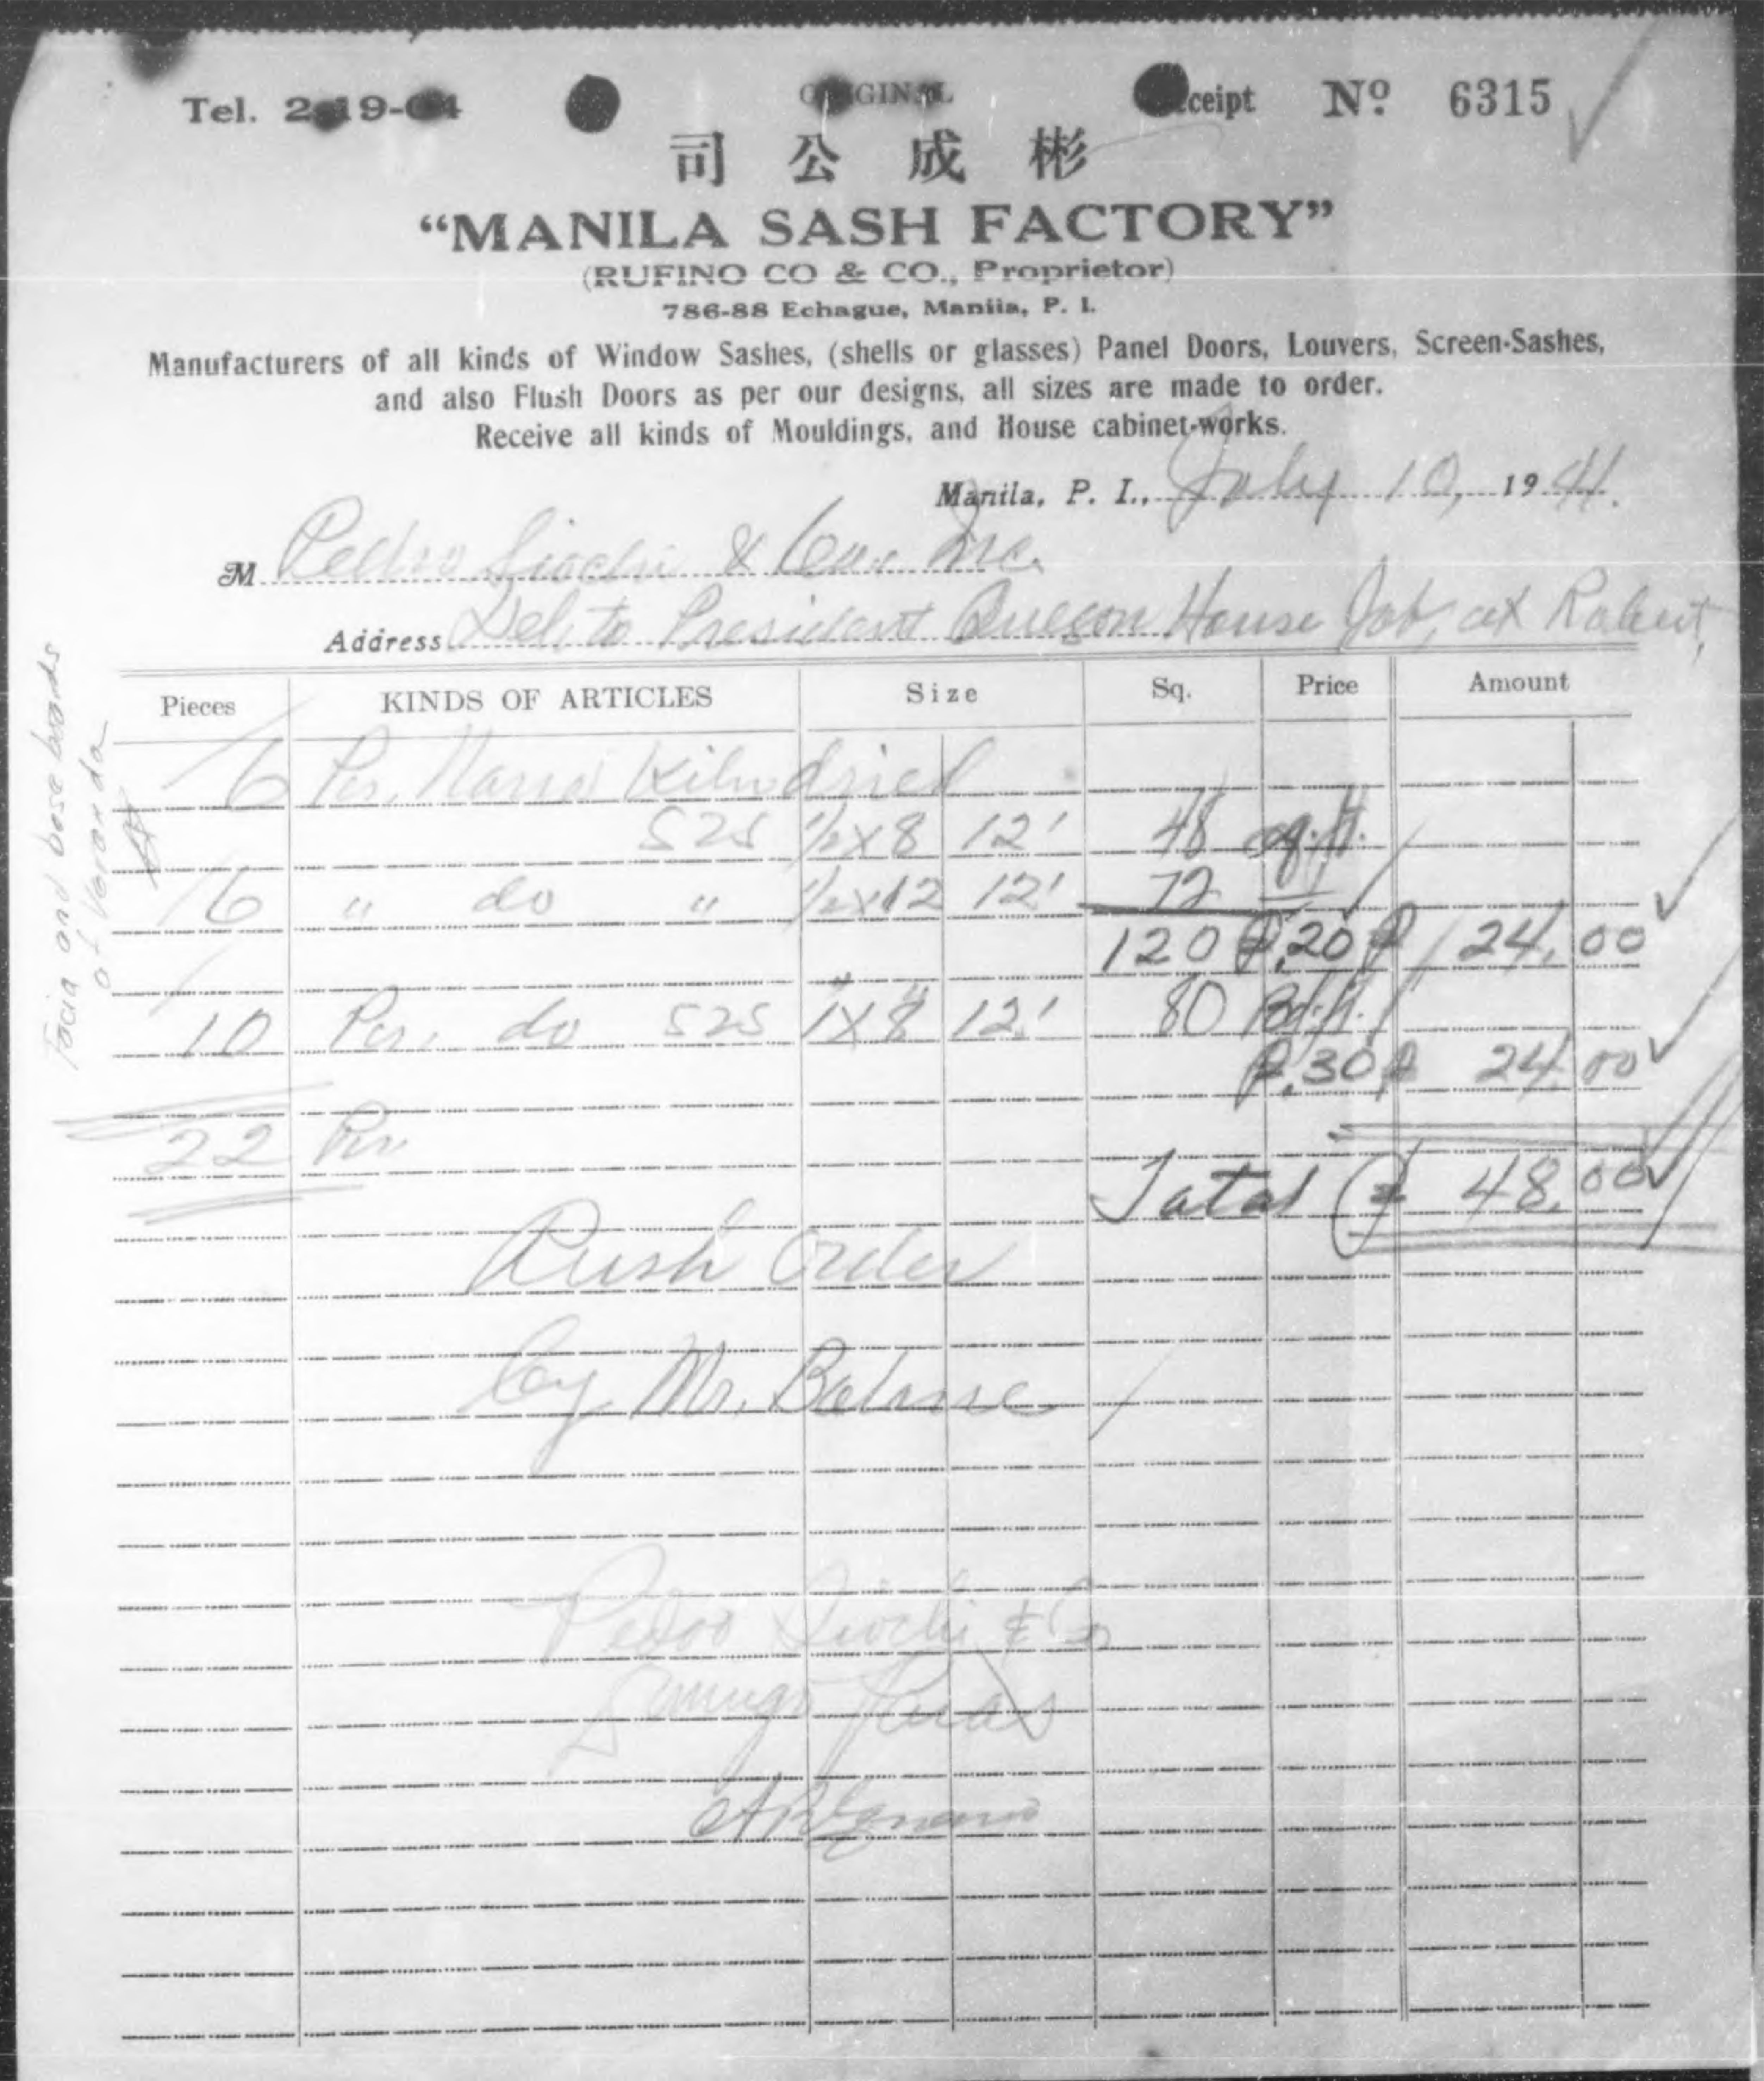 Tel. 2-19-04 ORIGINAL Receipt Nº 6315
司公成彬
“MANILA SASH FACTORY”
(RUFINO CO & CO., Proprietor)
786-88 Echague, Manila, P. I.
Manufacturers of all kinds of Window Sashes, (shells or glasses) Panel Doors, Louvers, Screen-Sashes,
and also Flush Doors as per our designs, all sizes are made to order.
Receive all kinds of Mouldings, and House cabinet-works.
Manila, P. I., July 10, 1941.
M Pedro Siochi & Co., Inc.
Address Del. to President Quezon House Job, at Robert,
Pieces KINDS OF ARTICLES Size Sq. Price Amount
6 Pcs. Narra Kilndried
S2S 1/2 x 8 12' 48 sq. ft.
6 " do " 1/2 x 12 12' 72
120 ₱.20 ₱ 24.00
10 Pcs. do S2S 1" x 8" 12' 80 Bd. ft.
₱.30 ₱ 24.00
22 Pcs
Total ₱ 48.00
Rush Order
by Mr.
Pedro Siochi & Co
Facia and base boards
of Veranda